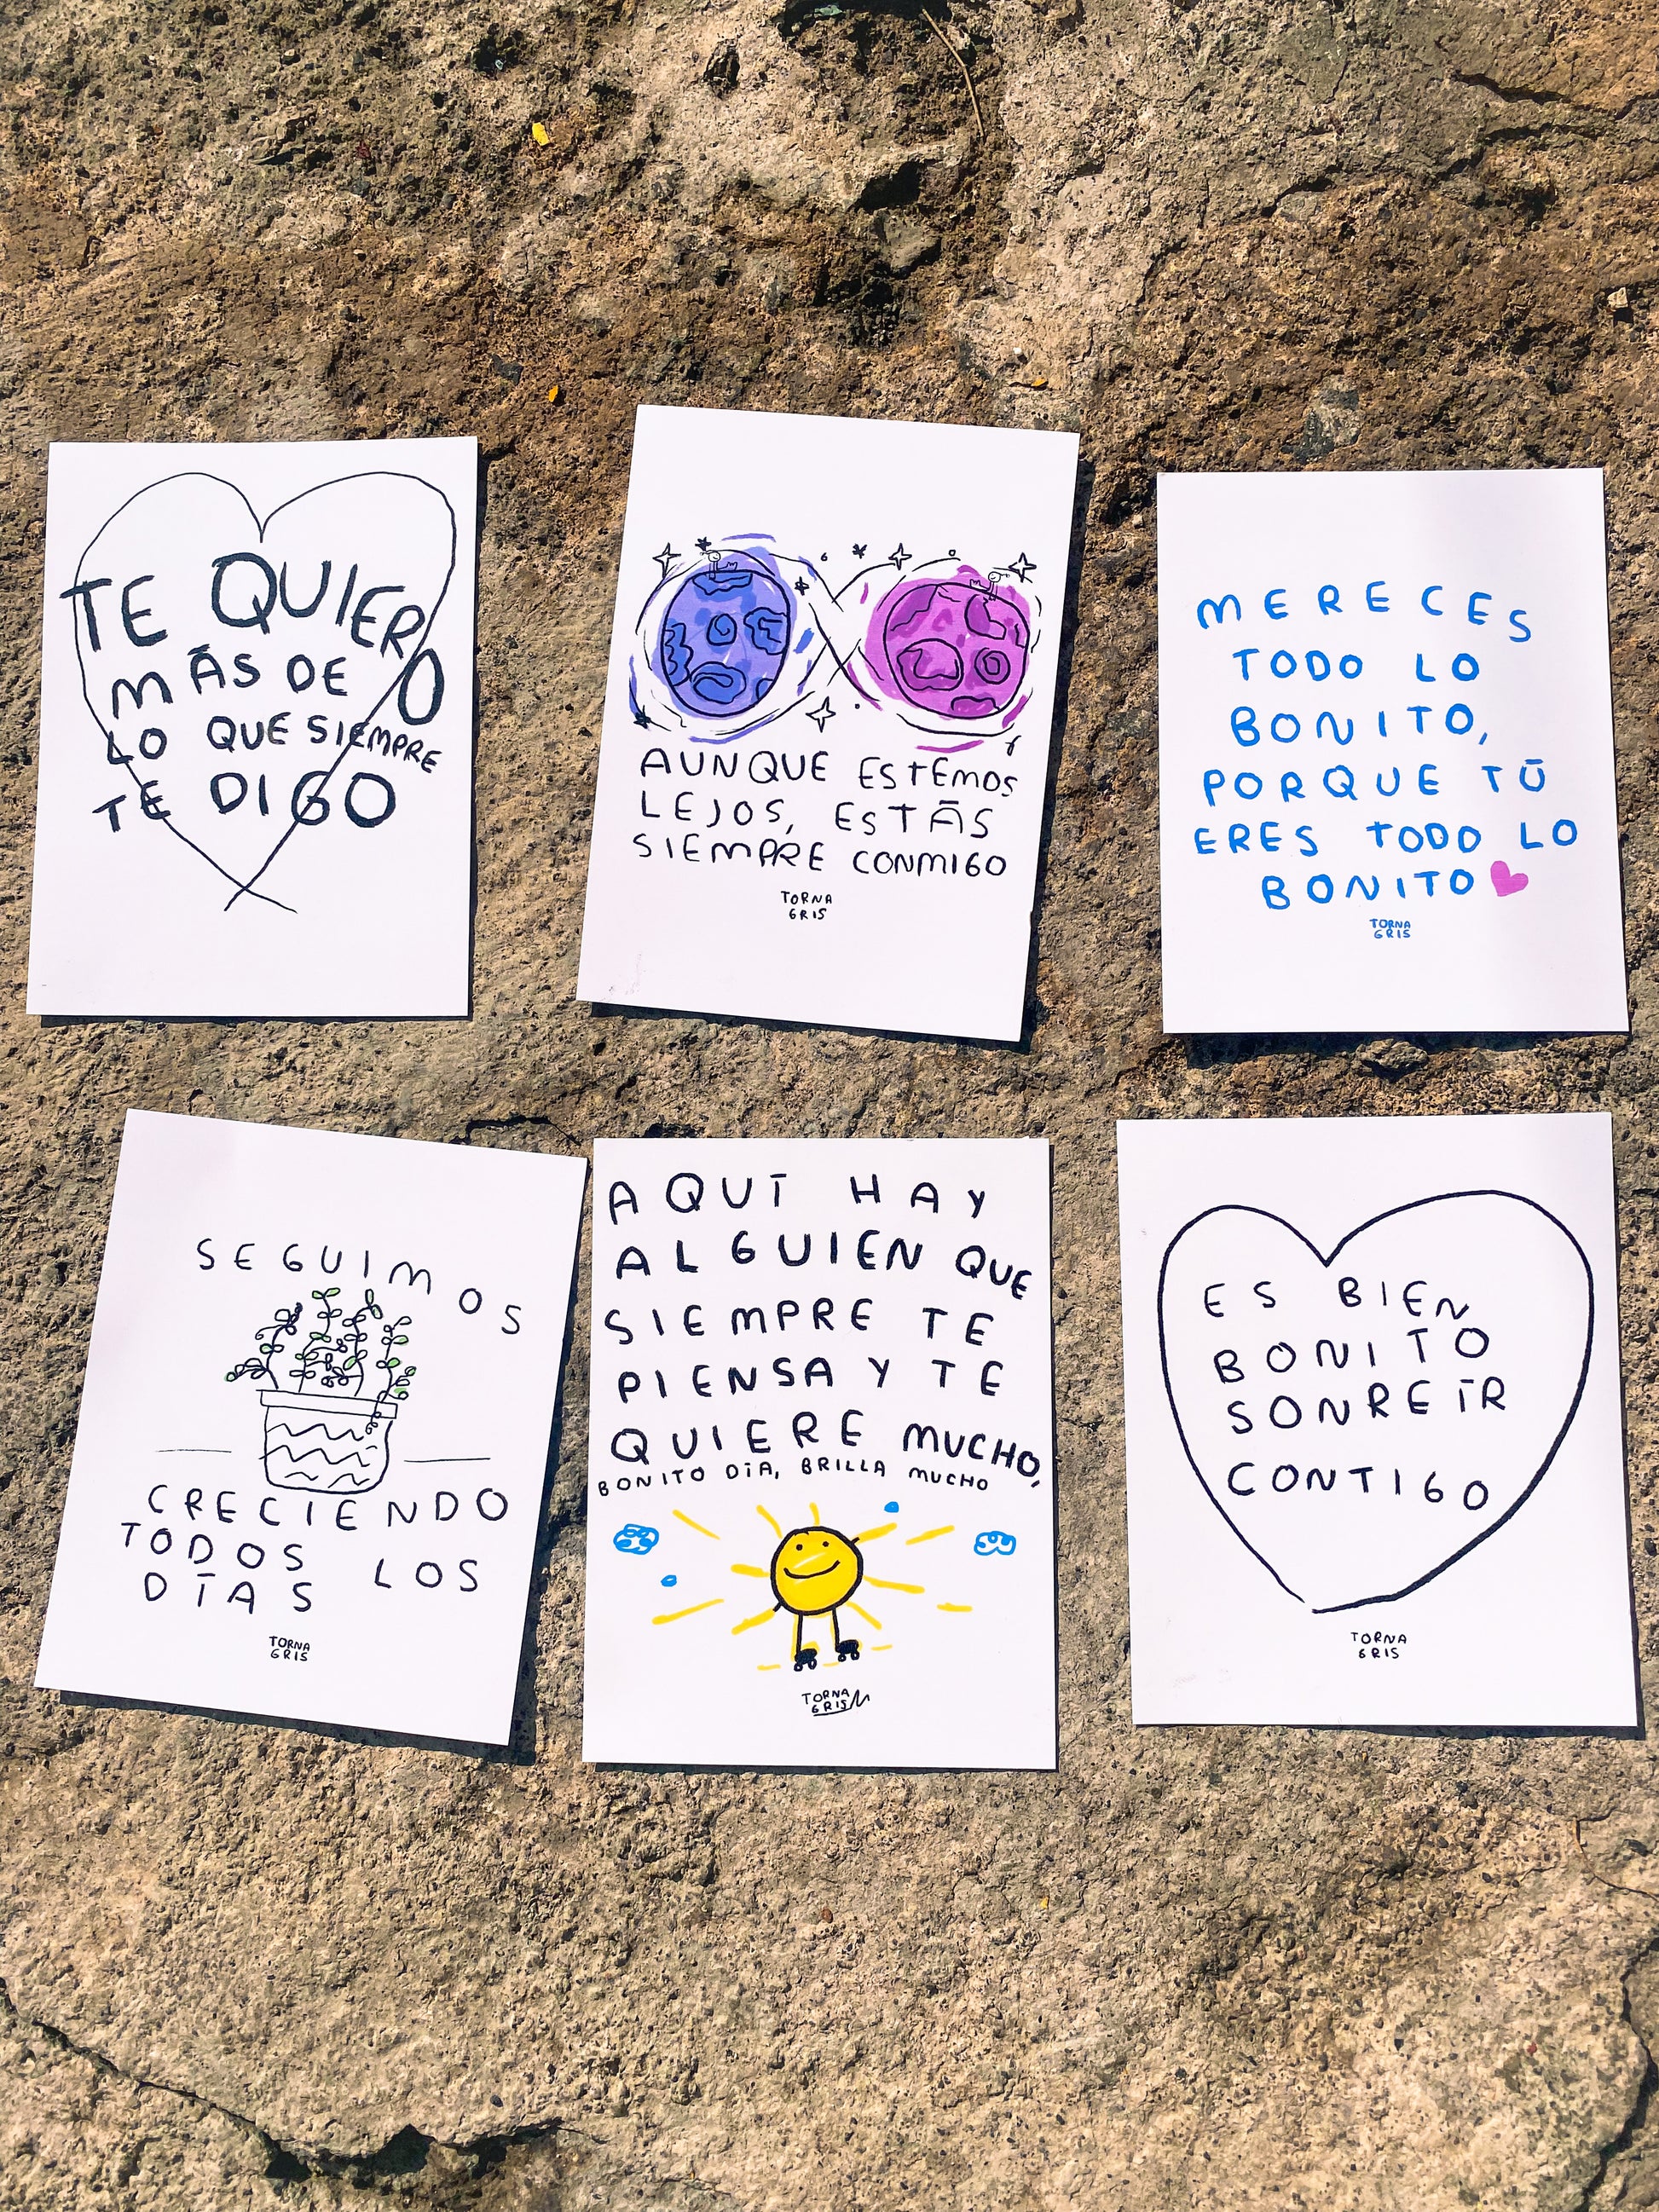 TE QUIERO
MÁS DE
LO QUE SIEMPRE
TE DIGO
AUNQUE ESTEMOS
LEJOS, ESTÁS
SIEMPRE CONMIGO
TORNA
GRIS
MERECES
TODO LO
BONITO,
PORQUE TÚ
ERES TODO LO
BONITO
TORNA
GRIS
SEGUIMOS
CRECIENDO
TODOS LOS
DÍAS
TORNA
GRIS
AQUÍ HAY
ALGUIEN QUE
SIEMPRE TE
PIENSA Y TE
QUIERE MUCHO,
BONITO DÍA, BRILLA MUCHO
TORNA
GRIS
ES BIEN
BONITO
SONREÍR
CONTIGO
TORNA
GRIS